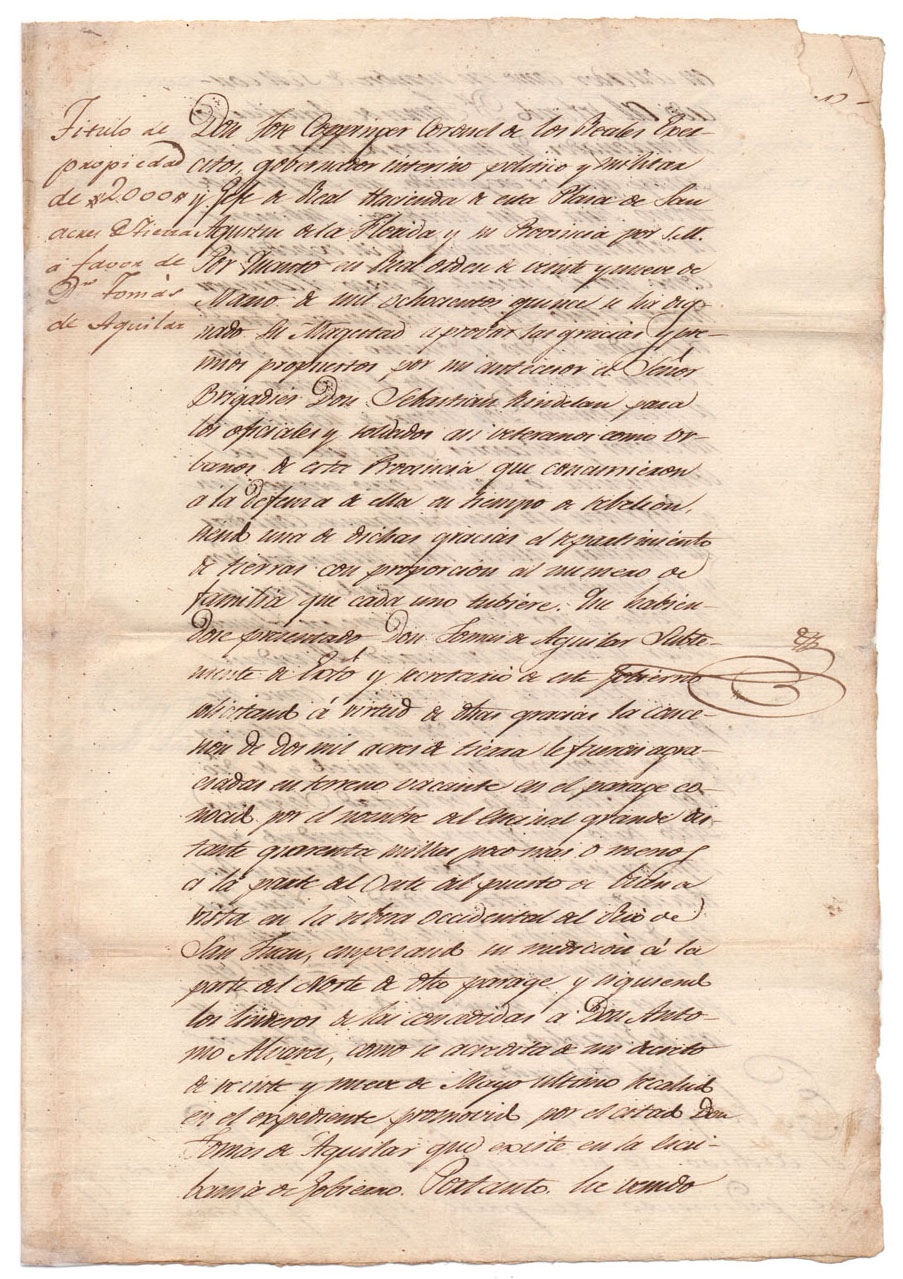 Titulo de
propiedad
de 2000
acres de tierra
á favor de
Dn Tomás
de Aguilar
Don José Coppinger Coronel de los Reales Exer-
citos, gobernador interino politico y militar
y Jefe de Real Hacienda de esta Plaza de San
Agustin de la Florida y su Provincia por S.M.
Por Quanto en Real orden de veinte y nueve de
Marzo de mil ochocientos quince se ha dig-
nado Su Magestad aprobar las gracias y pre-
mios propuestos por mi antecesor el Señor
Brigadier Don Sebastian Kindelan para
los oficiales y soldados asi veteranos como ur-
banos de esta Provincia que concurrieron
a la defensa de ella en tiempo de rebelion,
siendo una de dichas gracias el repartimiento
de tierras con proporcion al numero de
familia que cada uno tubiere. Que habien-
dose presentado Don Tomas de Aguilar Subte-
niente de Exto y secretario de este gobierno
solicitando á virtud de dhas gracias la conce-
sion de dos mil acres de tierra le fueron agra-
ciadas en terreno vacante en el parage co-
nocido por el nombre del Encinal grande dis-
tante quarenta millas poco mas o menos
a la parte del Oeste del puerto de buena
vista en la rivera occidental del Rio de
San Juan, empesando su medicion á la
parte del Norte de dho parage y siguiendo
los linderos de las concedidas a Don Anto-
nio Alvarez, como se acredita de mi decreto
de veinte y nueve de Mayo ultimo recaido
en el expediente promovido por el citado Don
Tomas de Aguilar que existe en la Escri-
bania de Gobierno. Portanto he venido